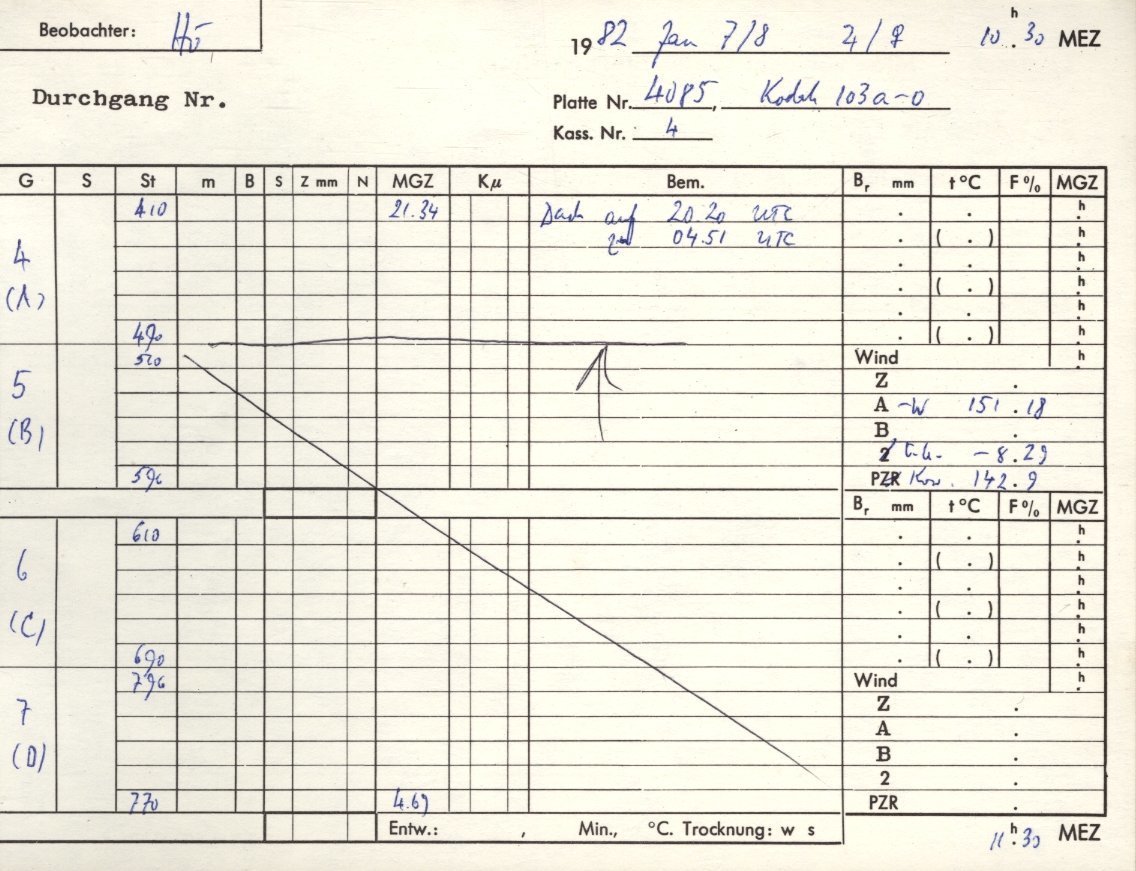 Beobachter: Hö
19 82 Jan 7/8 10 h . 30 MEZ
Durchgang Nr.
Platte Nr. 4085, Kodak 103a-O
Kass. Nr. 4
G S St m B S Z mm N MGZ Kμ Bem. Br mm t °C F % MGZ
410 21.34 Dach auf 20.20 UTC . . h .
zu 04.51 UTC . ( . ) h .
4 . . h .
(A) . ( . ) h .
. . h .
490 . ( . ) h .
510 Wind h .
5 Z .
A -W 151 . 18
(B) B .
2 -8.29
590 PZR 142.9
Br mm t °C F % MGZ
610 . . h .
6 . ( . ) h .
. . h .
(C) . ( . ) h .
. . h .
690 . ( . ) h .
790 Wind h .
7 Z .
A .
(D) B .
2 .
770 4.69 PZR .
Entw.: , Min., °C. Trocknung: w s
11 h . 30 MEZ